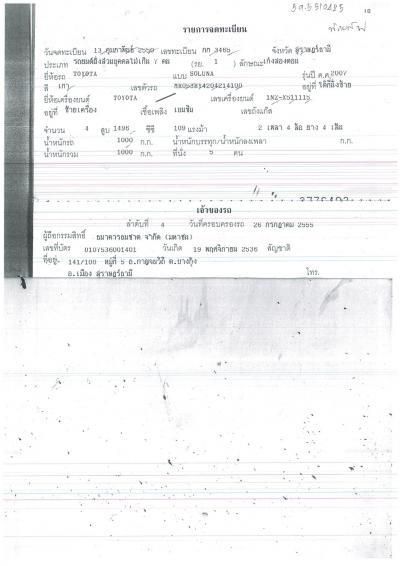 16
รายการจดทะเบียน
วันจดทะเบียน 13 กุมภาพันธ์ 2550 เลขทะเบียน กก 3465 จังหวัด สุราษฎร์ธานี
ประเภท รถยนต์นั่งส่วนบุคคลไม่เกิน 7 คน (รย. 1 ) ลักษณะ เก๋งสองตอน
ยี่ห้อรถ TOYOTA แบบ SOLUNA รุ่นปี ค.ศ. 2007
สี เทา เลขตัวรถ อยู่ที่
ยี่ห้อเครื่องยนต์ TOYOTA เลขเครื่องยนต์ 1NZ-X511115
อยู่ที่ ซ้ายเครื่อง เชื้อเพลิง เบนซิน เลขถังแก๊ส
จำนวน 4 สูบ 1496 ซีซี 109 แรงม้า 2 เพลา 4 ล้อ ยาง 4 เส้น
น้ำหนักรถ 1000 ก.ก. น้ำหนักบรรทุก/น้ำหนักลงเพลา ก.ก.
น้ำหนักรวม 1000 ก.ก. ที่นั่ง 5 คน
เจ้าของรถ
ลำดับที่ 4 วันที่ครอบครองรถ 26 กรกฎาคม 2555
ผู้ถือกรรมสิทธิ์ ธนาคารธนชาต จำกัด (มหาชน)
เลขที่บัตร 0107536001401 วันเกิด 19 พฤศจิกายน 2536 สัญชาติ
ที่อยู่ 141/100 หมู่ที่ 5 ถ.กาญจนวิถี ต.บางกุ้ง
อ.เมือง สุราษฎร์ธานี โทร.